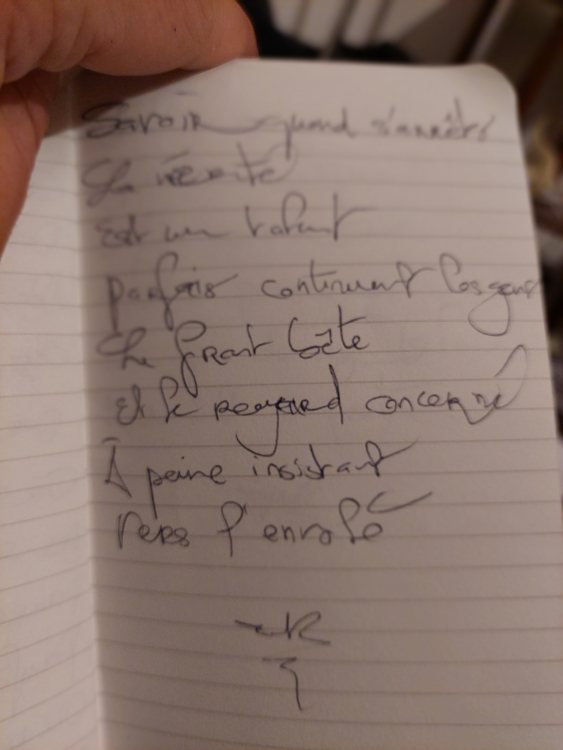 Savoir quand s'arrêter
La vérité
Est un talent
parfois continuent les gens
Le front bête
Et le regard concerné
À peine insistant
Vers l'envolé